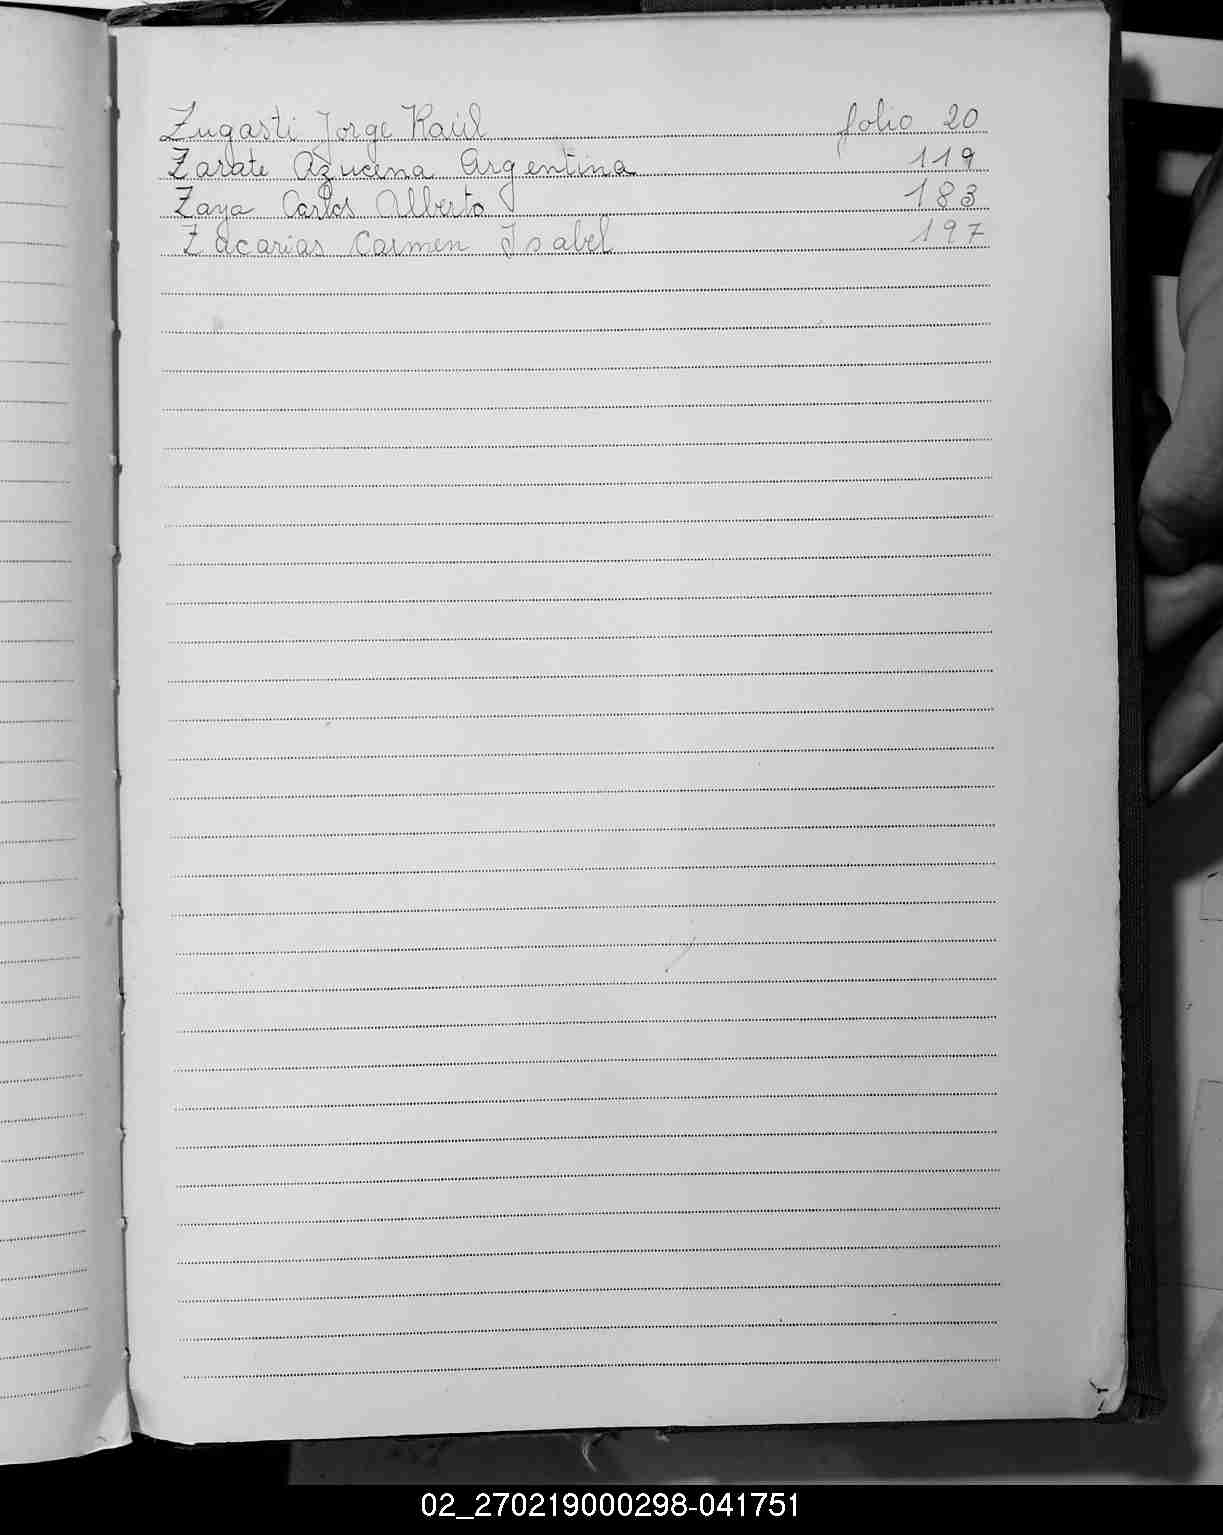 Zugasti Jorge Raúl folio 20
Zarate Azucena Argentina 119
Zaya Carlos Alberto 183
Zacarias Carmen Isabel 197
02_270219000298-041751